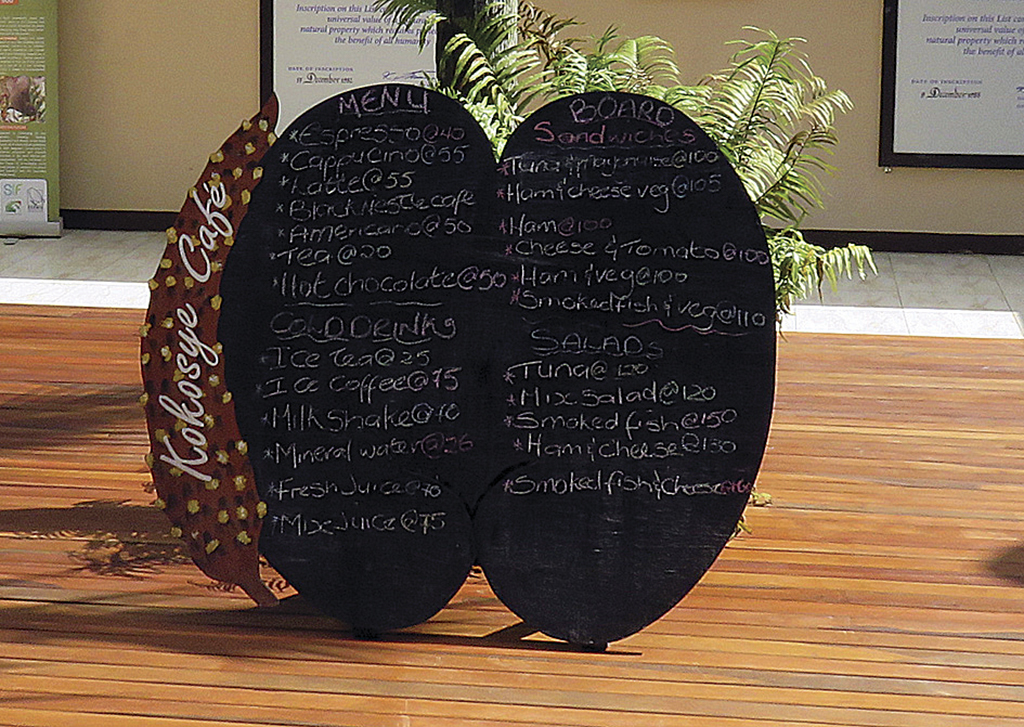 Inscription on this List
universal value of
natural property which
the benefit of all humanity
DATE OF INSCRIPTION
December
Kokosye Café
MENU
*Espresso@40
*Cappucino@55
*Latte@55
*Black Nestle cafe
*Americano@50
*Tea@20
*Hot chocolate@50
COLD DRINKS
*Ice Tea@25
*Ice Coffee@75
*Milkshake@70
*Mineral water@26
*Fresh Juice@70
*Mix Juice@75
BOARD
Sandwiches
*Tuna & mayonaise@100
*Ham & cheese veg@105
*Ham@100
*Cheese & Tomato@100
*Ham & veg@100
*Smoked fish & veg@110
SALADS
*Tuna@120
*Mix Salad@120
*Smoked fish@150
*Ham & Cheese@130
*Smoked fish & Cheese
Inscription on this List
universal value of
natural property which
the benefit of
DATE OF INSCRIPTION
December
SIF